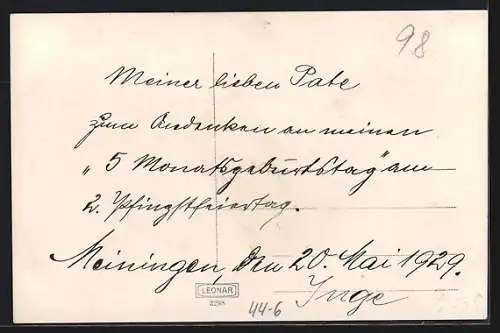 98
Meiner lieben Pate
zum Andenken an meinen
„5 Monatsgeburtstag" am
2. Pfingstfeiertag.
Meiningen, den 20. Mai 1929.
Inge
LEONAR
44-6